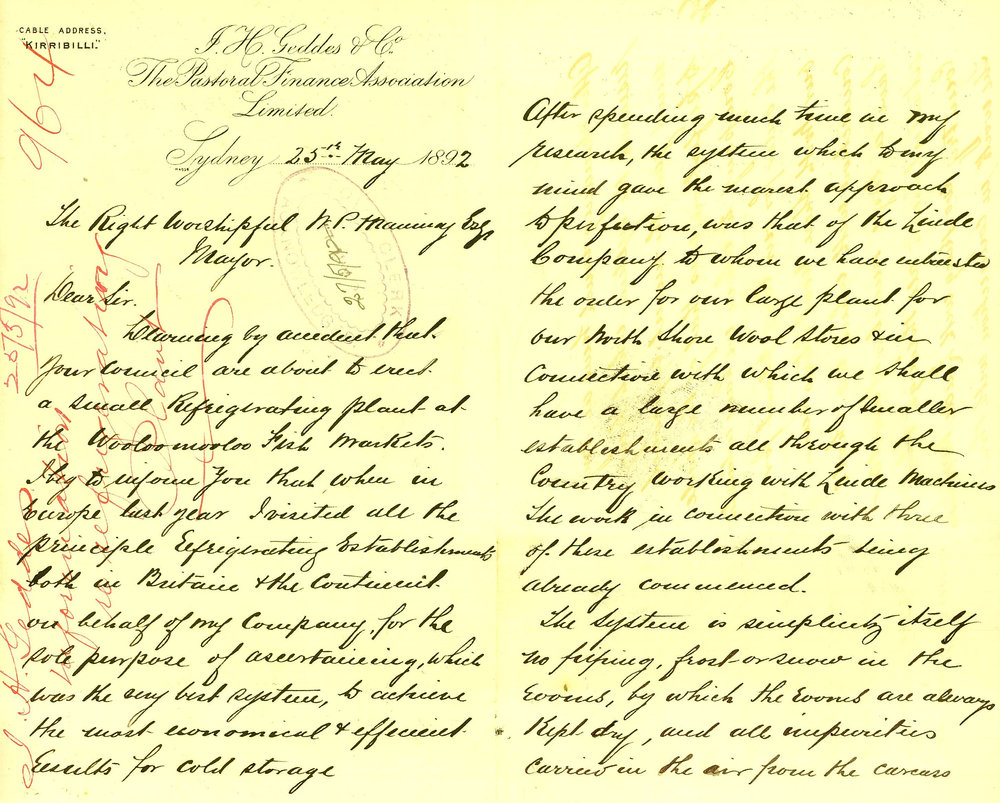 CABLE ADDRESS.
"KIRRIBILLI."
964
J. H. Geddes & Co
The Pastoral Finance Association
Limited.
Sydney 25th May 1892
The Right Worshipful W. P. Manning Esq
Mayor.
Dear Sir.
Learning by accident that
Your Council are about to erect
a small Refrigerating plant at
the Wooloomooloo Fish Markets.
I beg to inform You that when in
Europe last year I visited all the
principle Refrigerating Establishments
both in Britain & the Continent
on behalf of my Company, for the
sole purpose of ascertaining, which
was the very best system, to achieve
the most economical & efficient
Results for cold storage
After spending much time in my
research, the system which to my
mind gave the nearest approach
to perfection, was that of the Linde
Company to whom we have intrusted
the order for our large plant for
our North Shore Wool Stores & in
Connection with which we shall
have a large number of smaller
establishments all through the
Country working with Linde Machines
The work in connection with three
of these establishments being
already commenced.
The System is simplicity itself
no piping, frost or snow in the
rooms, by which the rooms are always
Kept dry, and all impurities
carried in the air from the carcass
J. H. Geddes 25/5/92
Information
re Refrigerating
CLERK
26/5/92